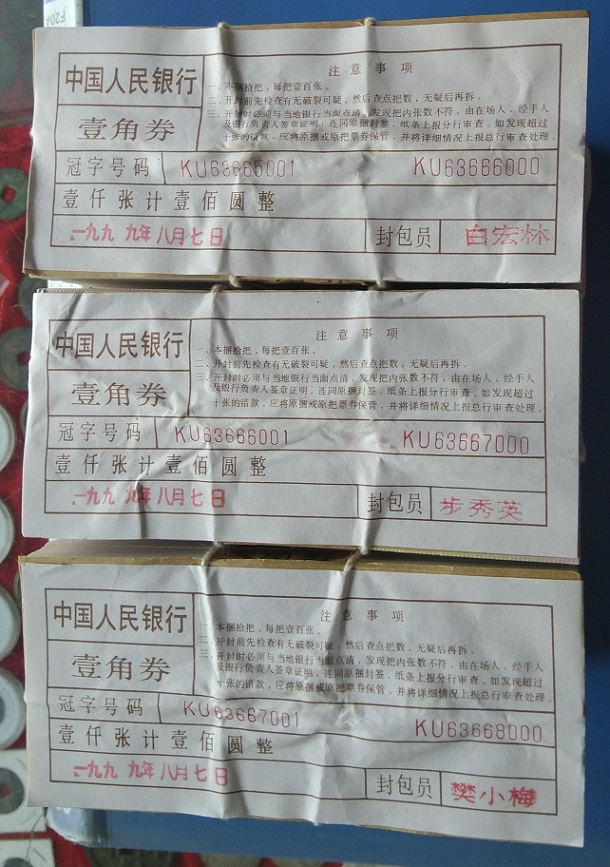 中国人民银行
壹角券
注意事项
一、本捆拾把，每把壹百张。
二、开封前先检查有无破裂可疑，然后查点把数，无疑后再拆。
三、开封时必须与当地银行当面点清，发现把内张数不符，由在场人、经手人
及银行负责人签章证明，连同原捆封签、纸条上报分行审查，如发现超过
十张的错款，应将原捆或原把票券保管，并将详细情况上报总行审查处理。
冠字号码 KU63665001 KU63666000
壹仟张计壹佰圆整
一九九九年八月七日 封包员 白宏林
中国人民银行
壹角券
注意事项
一、本捆拾把，每把壹百张。
二、开封前先检查有无破裂可疑，然后查点把数，无疑后再拆。
三、开封时必须与当地银行当面点清，发现把内张数不符，由在场人、经手人
及银行负责人签章证明，连同原捆封签、纸条上报分行审查，如发现超过
十张的错款，应将原捆或原把票券保管，并将详细情况上报总行审查处理。
冠字号码 KU63666001 KU63667000
壹仟张计壹佰圆整
一九九九年八月七日 封包员 步秀英
中国人民银行
壹角券
注意事项
一、本捆拾把，每把壹百张。
二、开封前先检查有无破裂可疑，然后查点把数，无疑后再拆。
三、开封时必须与当地银行当面点清，发现把内张数不符，由在场人、经手人
及银行负责人签章证明，连同原捆封签、纸条上报分行审查，如发现超过
十张的错款，应将原捆或原把票券保管，并将详细情况上报总行审查处理。
冠字号码 KU63667001 KU63668000
壹仟张计壹佰圆整
一九九九年八月七日 封包员 樊小梅